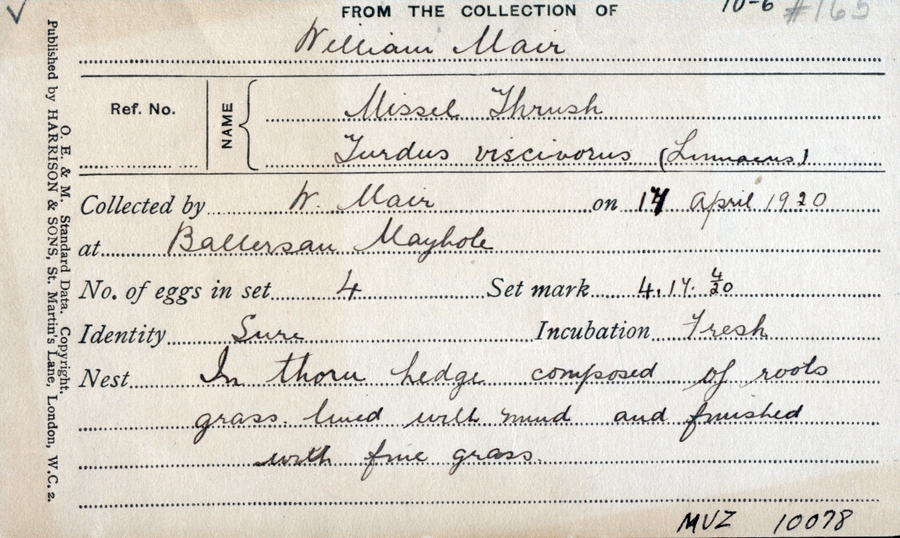 FROM THE COLLECTION OF
10-6 #165
William Mair
Ref. No.
NAME
Missel Thrush
Turdus viscivorus (Linnaeus)
Collected by W. Mair on 14 April 1920
at Maybole
No. of eggs in set 4 Set mark 4.14. 4/20
Identity Sure Incubation Fresh
Nest In thorn hedge composed of roots
grass. lined with mud and finished
with fine grass.
MVZ 10078
O. E. & M. Standard Data. Copyright.
Published by HARRISON & SONS, St. Martin's Lane, London, W.C.2.